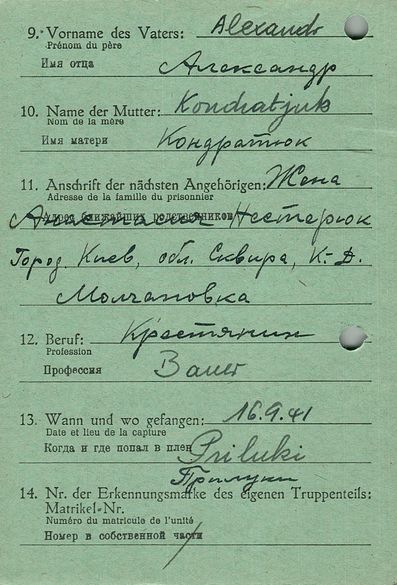 9. Vorname des Vaters: Alexandr
Prénom du père
Имя отца Александр
10. Name der Mutter: Kondratjuk
Nom de la mère
Имя матери Кондратюк
11. Anschrift der nächsten Angehörigen: Жена
Adresse de la famille du prisonnier
Адрес ближайших родственников Анастасия Нестерюк
Город Киев, обл. Сквира, К.-Д.
Молчановка
12. Beruf: Крестянин
Profession
Профессия Bauer
13. Wann und wo gefangen: 16.9.41
Date et lieu de la capture
Когда и где попал в плен Priluki
Прилуки
14. Nr. der Erkennungsmarke des eigenen Truppenteils:
Matrikel-Nr.
Numéro du matricule de l'unité
Номер в собственной части /